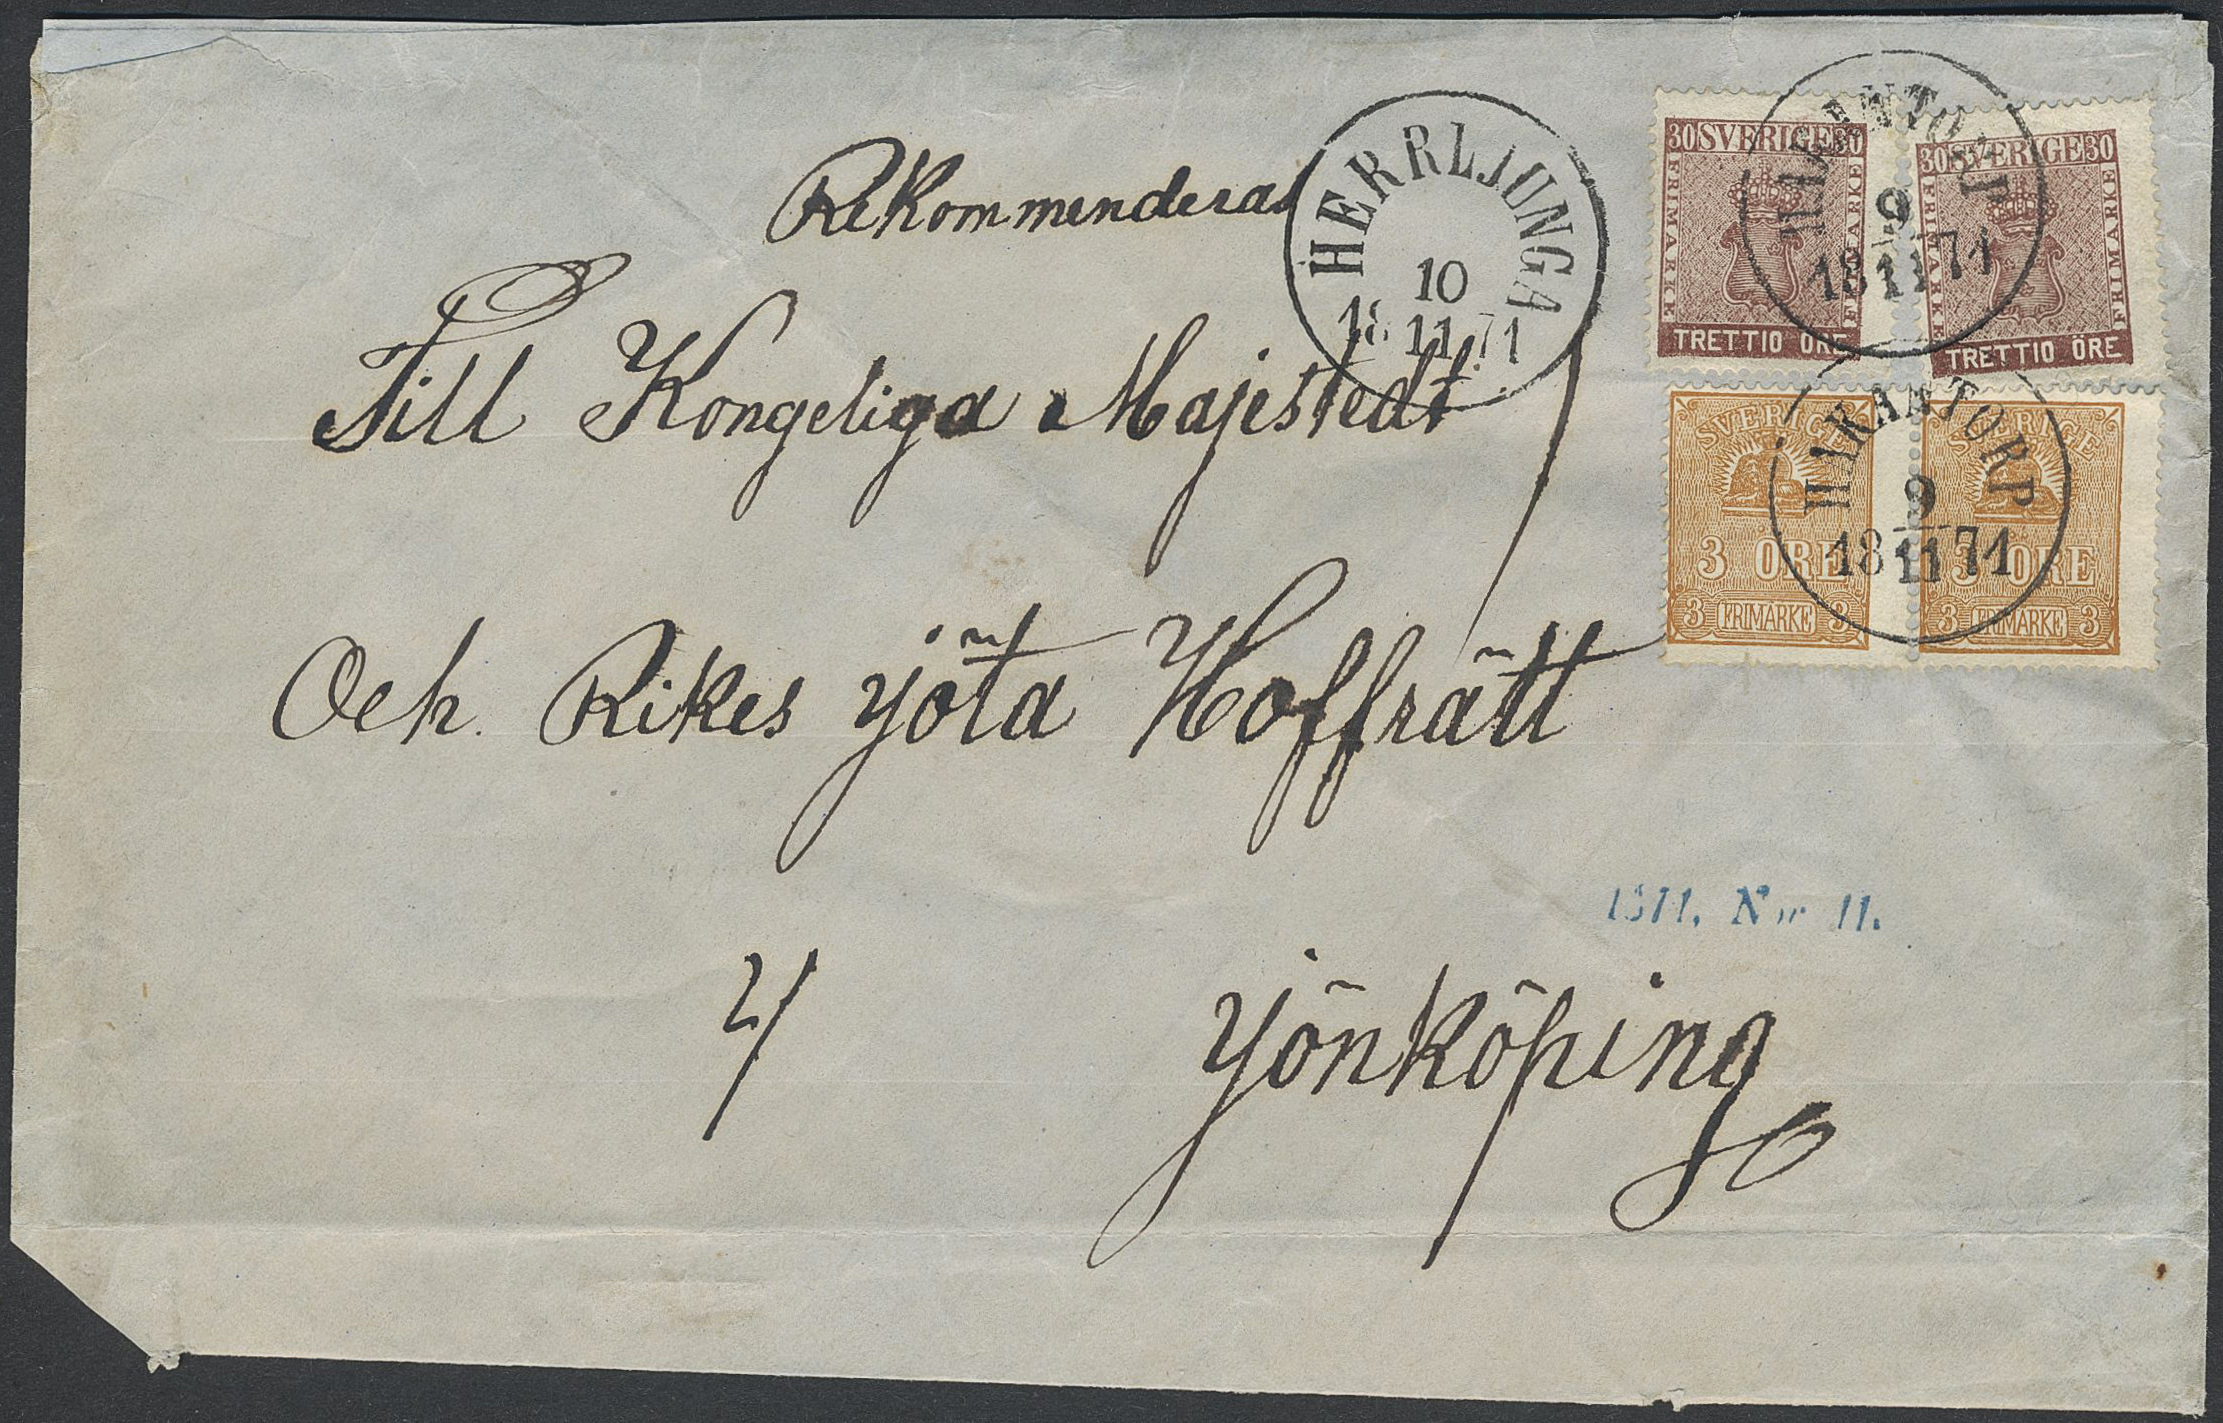 Rekommenderas
HERRLJUNGA
10
18 11 71
30 SVERIGE 30
FRIMÄRKE
FRIMÄRKE
TRETTIO ÖRE
30 SVERIGE 30
FRIMÄRKE
FRIMÄRKE
TRETTIO ÖRE
HÅKANTORP
9
18 11 71
Till Kongeliga Majestedt
SVERIGE
3 ÖRE
3 FRIMÄRKE 3
SVERIGE
3 ÖRE
3 FRIMÄRKE 3
HÅKANTORP
9
18 11 71
Och Rikes Yöta Hoffrätt
1871. Nov 11.
4
Yönköping